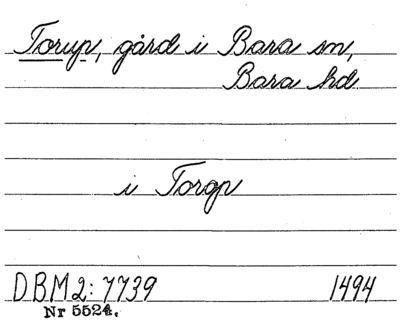 Torup, gård i Bara sn,
Bara hd
i Torgp
DBM2: 7739 1494
Nr 5524.